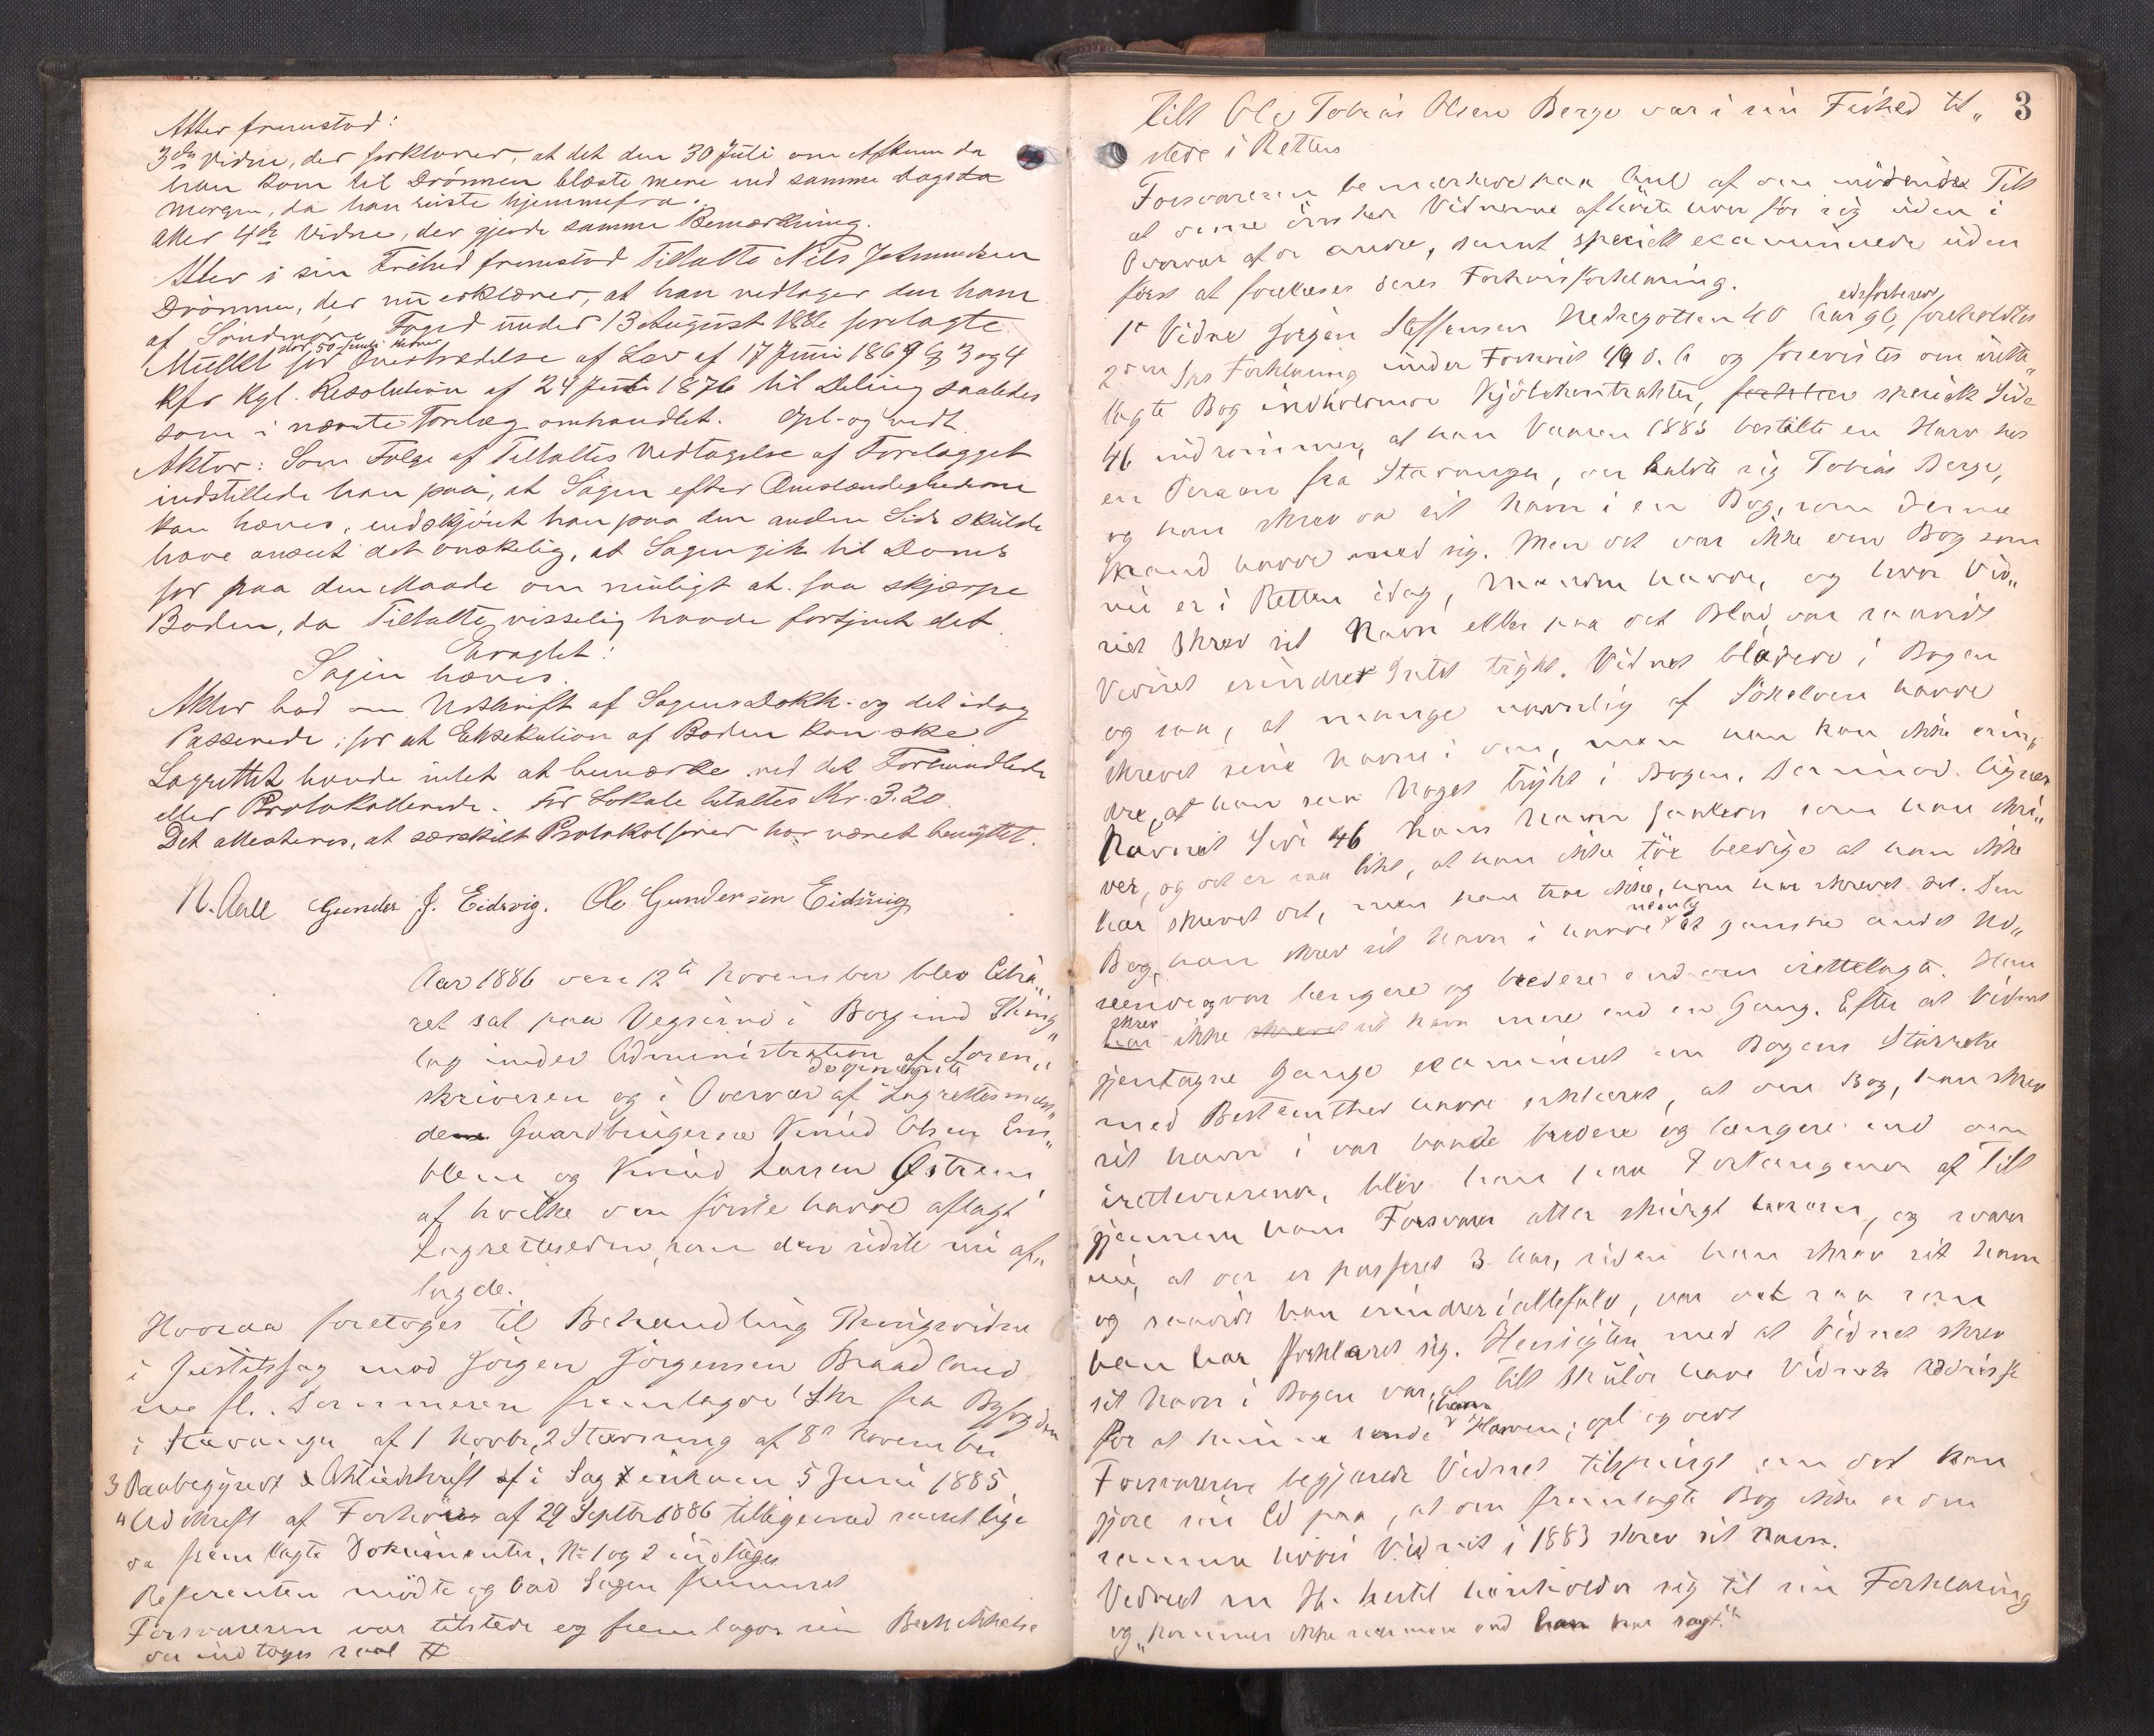 Atter fremstod:
3die Vidne, der forklarer, at det den 30 Juli om Aftenen da
han kom til Drönnen blæste mere end samme Dags da
Morgen, da han reiste hjemmefra.
Atter 4de Vidne, der gjorde samme Bemærkning.
Atter i sin Frihed fremstod Tiltalte Nils
Drönnen, der nu erklærer, at han vedtager den ham
af Söndmöre Foged under 13 August 1886 forelagte
Mulkt for Overtrædelse af Lov af 17 Juni 1869 §§ 3 og 4
kfr Kgl. Resolution af 24 Juni 1876 til Deling saaledes
som i nævnte Forelæg omhandlet. Opl. og vedt.
Aktor: Som Fölge af Tiltaltes Vedtagelse af Forelægget
indstillede han paa, at Sagen efter Omstændighederne
kan hæves, endskjönt han paa den anden Side skulde
have anseet det önskelig, at Sagen gik til Doms
for paa den Maade om muligt at faa skjærpe
Boden, da Tiltalte visselig havde fortjent det.
Eragtet:
Sagen hæves.
Aktor bad om Udskrift af Sagens Dokk. og det idag
Passerede, for at Eksekution af Boden kan ske
Lagrettet havde intet at bemærke ved det Forhandlede
eller Protokollerede. For Lokale betaltes Kr. 3.20.
Det attesteres, at særskilt Protokolförer har været benyttet.
N. Aall Gunder J. Eidsvig. Ole Gundersen Eidsvig
Aar 1886 den 12te November blev Extra„
ret sat paa Vegsund i Borgund Thing„
lag under Administration af Soren„
skriveren og i Overvær af Lagrettesmæn„
dene Gaardbrugerne Knud Olsen Em„
blem og Knud Larsen Östrem,
af hvilke den förste havde aflagt
Lagretteseden, som den sidste nu af„
lagde.
Hvorda foretoges til Behandling Thingsvidne
i Justitssag mod Jörgen Jörgensen Braadland
me fl. Dommeren fremlagde 1 Skr fra Byfogden
i Stavanger af 1 Novbr, 2 Stævning af 8de November
3 Paabegyndt Extraktudskrift i Sag 5 Juni 1885
4 Udskrift af Forhörer af 29 Septbr 1886 tilligemed samtlige
da fremlagte Dokumenter. No 1 og 2 indtages
Referenten mödte og bad Sagen fremmet
Forsvareren var tilstede og fremlagde sin Beskikkelse
der indtages saal
3
Tilt Ole Tobias Olsen Berge var i sin Frihed til„
stede i Retten
Forsvareren bemærkede paa Anl af de mödende Tilt
at denne önsker Vidnerne afhörte hver for sig uden i
Overvær af de andre, samt specielt examinerede uden
först at forelæses deres Forhörsforklaring.
1ste Vidne Jörgen Steffensen Nedregotten 40 Aar gl, foreholdtes
edsforkyndt,
Sin Forklaring under Forhöret og forevistes den irette„
lagte Bog indholdende Kjöbekontrakter, specielt Side
46 indrömmer, at han Vaaren 1883 bestilte en Harv hos
en Person fra Stavanger, der kaldte sig Tobias Berge,
og han skrev da sit Navn i en Bog, som denne
Mand havde med sig. Men det var ikke den Bog som
nu er i Retten idag, Manden havde, og hvor Vid„
net skrev sit Navn eller paa det Blad, var saavidt
Vidnet erindrer Intet trykt. Vidnet bladede i Bogen
og saa, at mange navnlig af Sökelven havde
skrevet sine Navne i den, men han kan ikke erin„
dre, at han saa Noget trykt i Bogen. Derimod ligner
Navnet Side 46 hans Navn saaledes som han skri„
ver, og det er saa likt, at han ikke tör beedige at han ikke
har skrevet det, men han tror ikke, han har skrevet det. Den
Bog, han skrev sit Navn i havde nemlig et ganske andet Ud„
seende og var længere og bredere end den irettelagte. Han
skrev ikke sit Navn mere end en Gang. Efter at Vidnet
gjentagne Gange examineret om Bogens Störrelse
med Bestemthed havde erklæret, at den Bog, han skrev
sit Navn i var baade bredere og længere end den
iretteværende, blev han paa Forlangende af Tilt
gjennem hans Forsvarer atter spurgt herom, og svarer
nu, at der er passeret 3 Aar, siden han skrev sit Navn
og saavidt han erindrer iallefald, var det saa som
han har forklaret sig. Hensigten med at Vidnet skrev
sit Navn i Bogen var, at Tilt skulde have Vidnets Adresse
for at kunne sende ham Harven; opl og vedt
Forsvareren begjærede Vidnet tilspurgt om det kan
gjöre sin Ed paa, at den fremlagte Bog ikke er den
samme hvori Vidnet i 1883 skrev sit Navn.
Vidnet hertil henholder sig til sin Forklaring
og „kommer ikke nærmere end han har sagt."